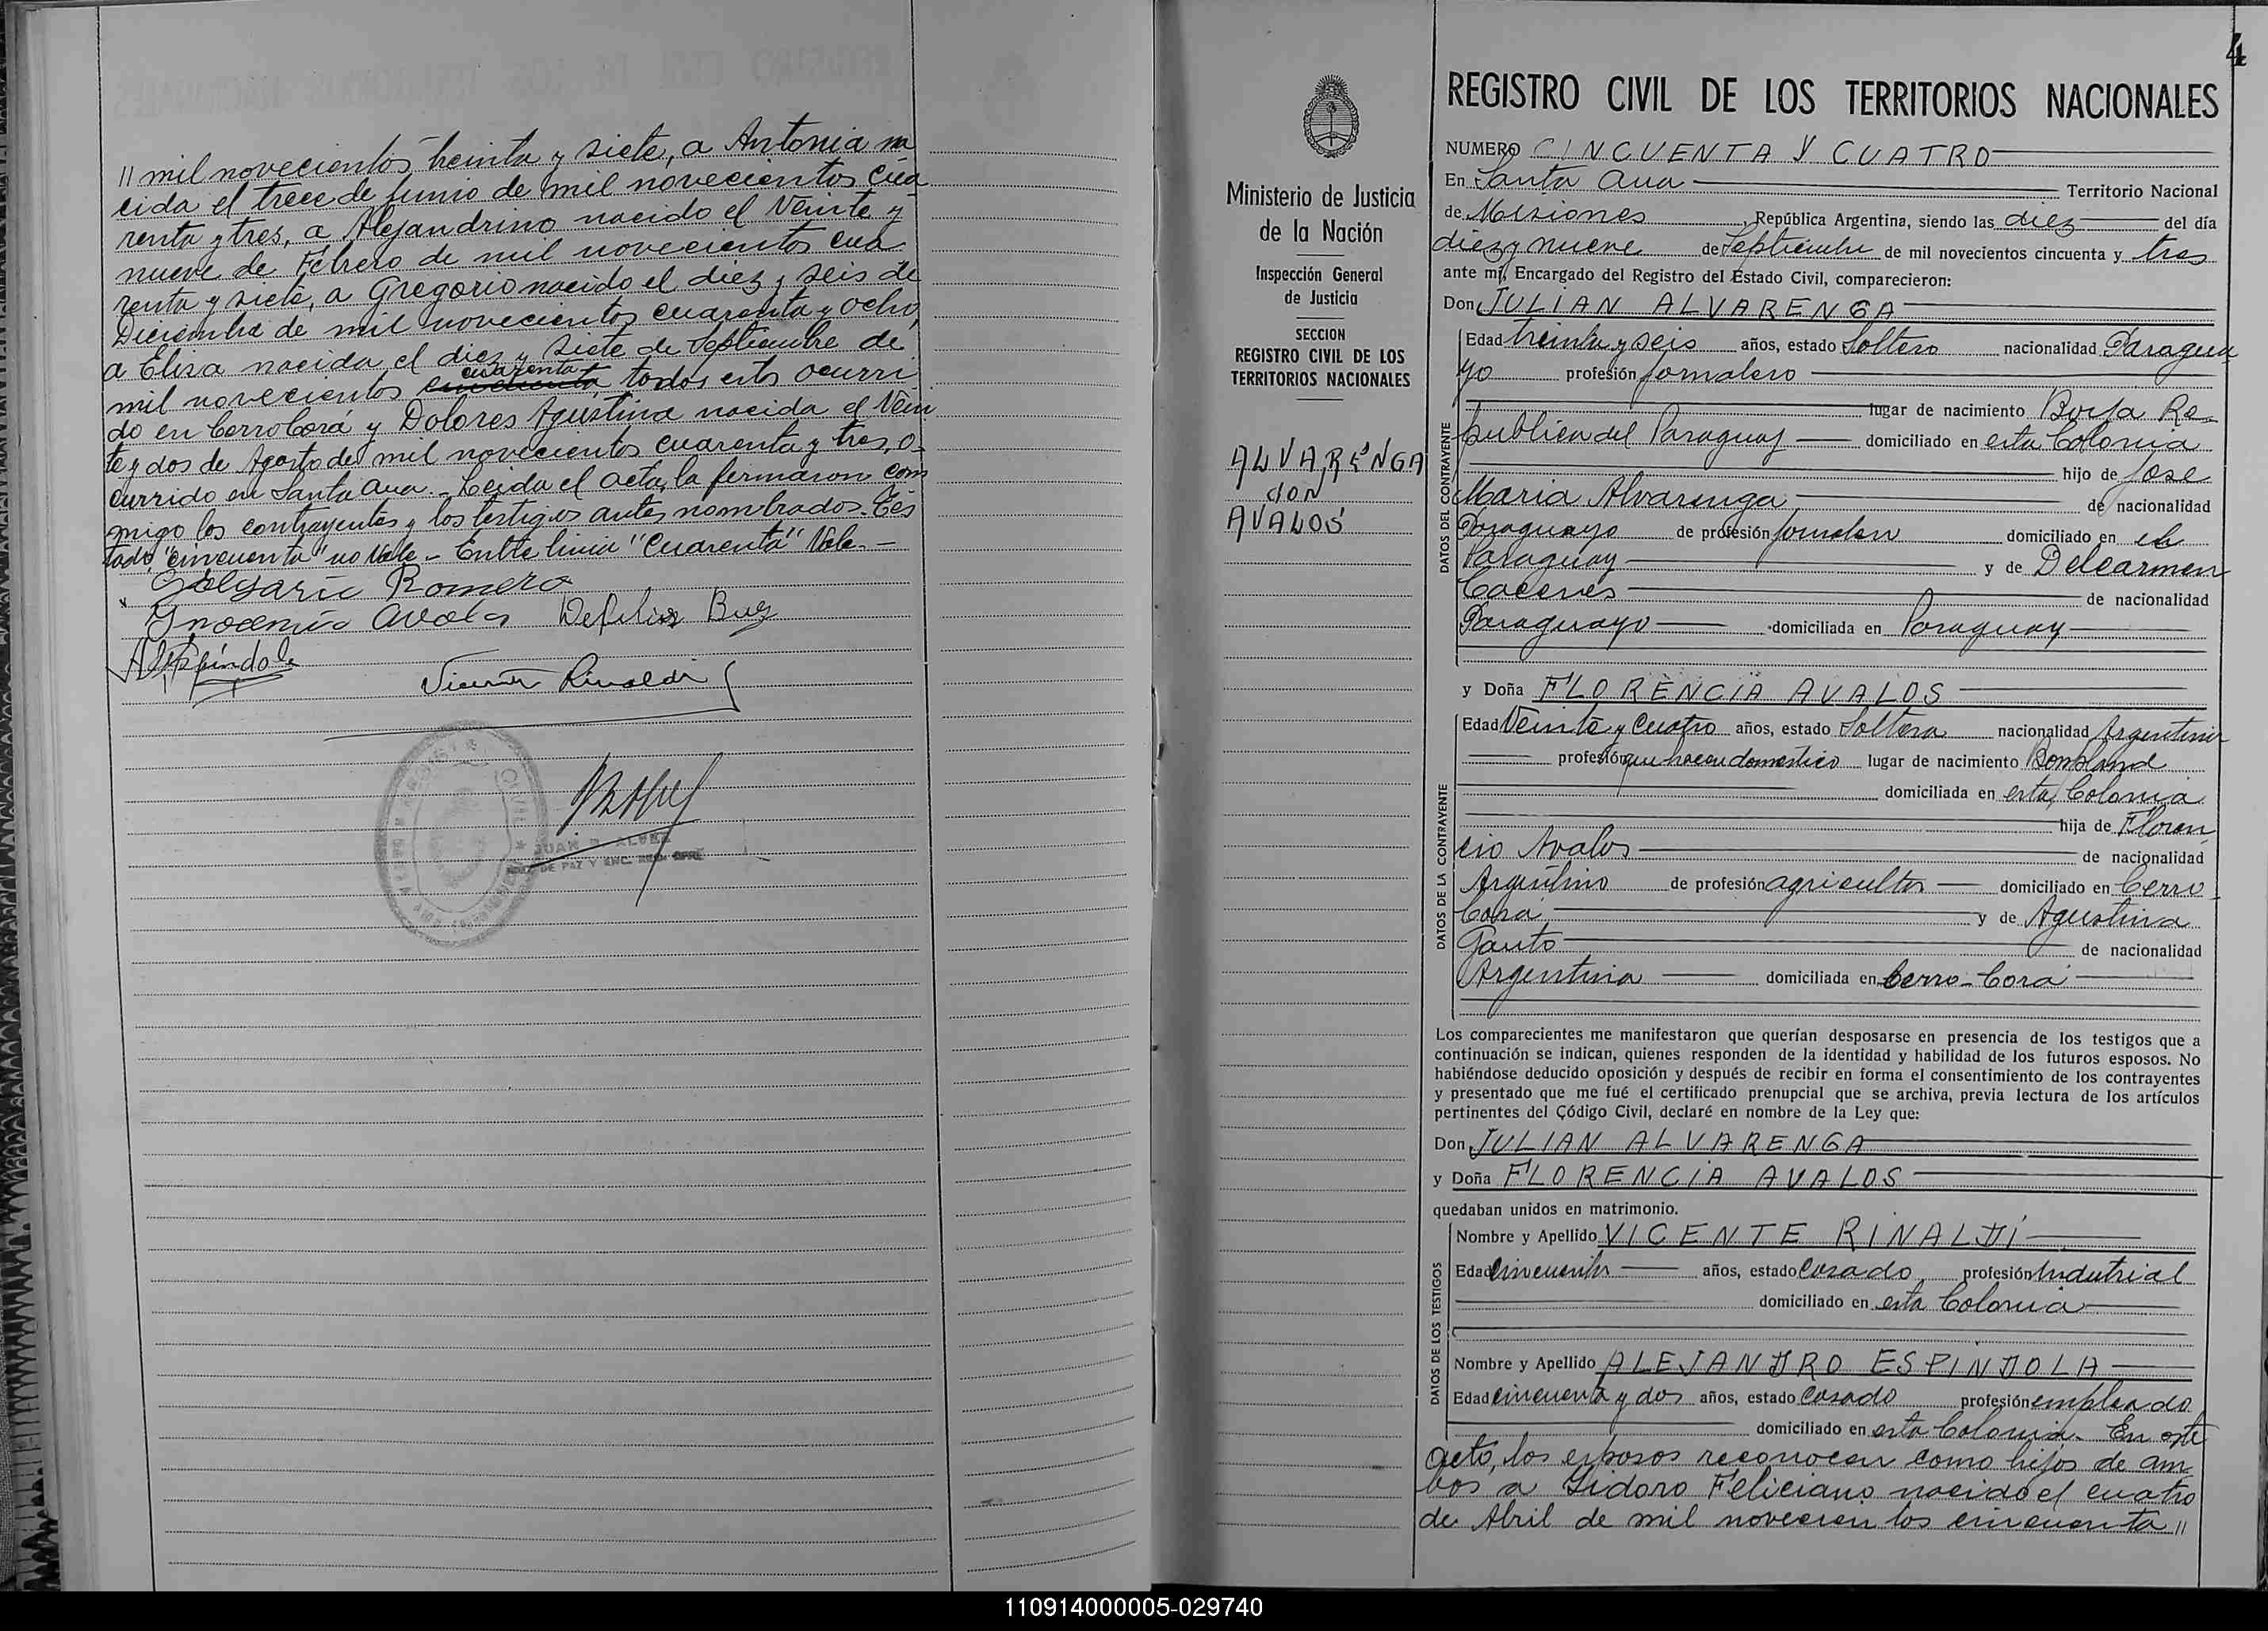 // mil novecientos treinta y siete, a Antonia na
cida el trece de Junio de mil novecientos cua
renta y tres, a Alejandrino nacido el Veinte y
nueve de Febrero de mil novecientos cua
renta y siete, a Gregorio nacido el diez y seis de
Diciembre de mil novecientos cuarenta y ocho,
a Elisa nacida el diez y siete de Septiembre de
cuarenta
mil novecientos cincuenta, todos estos ocurri
do en Cerro Corá y Dolores Agustina nacida el Vein
te y dos de Agosto de mil novecientos cuarenta y tres, o-
currido en Santa Ana.- Leida el acta, la firmaron con
migo los contrayentes y los testigos antes nombrados. Tes
tado, "cincuenta" no Vale.- Entre linia "Cuarenta" Vale.-
Romero
Avalos
Vicente Rinaldi
4
Ministerio de Justicia
de la Nación
Inspección General
de Justicia
SECCION
REGISTRO CIVIL DE LOS
TERRITORIOS NACIONALES
ALVARENGA
con
AVALOS
REGISTRO CIVIL DE LOS TERRITORIOS NACIONALES
NUMERO CINCUENTA Y CUATRO
En Santa Ana Territorio Nacional
de Misiones, República Argentina, siendo las diez del día
diez y nueve de Septiembre de mil novecientos cincuenta y tres
ante mí, Encargado del Registro del Estado Civil, comparecieron:
Don JULIAN ALVARENGA
DATOS DEL CONTRAYENTE
Edad treinta y seis años, estado Soltero nacionalidad Paragua
yo profesión jornalero
lugar de nacimiento Borja Re-
publica del Paraguay domiciliado en esta Colonia
hijo de José
Maria Alvarenga de nacionalidad
Paraguayo de profesión jornalero domiciliado en el
Paraguay y de Delcarmen
Caceres de nacionalidad
Paraguayo domiciliada en Paraguay
y Doña FLORENCIA AVALOS
DATOS DE LA CONTRAYENTE
Edad Veinte y Cuatro años, estado Soltera nacionalidad Argentina
profesión que haceres domestico lugar de nacimiento Bompland
domiciliada en esta Colonia
hija de Floren
cio Avalos de nacionalidad
Argentino de profesión agricultor domiciliado en Cerro
Corá y de Agustina
de nacionalidad
Argentina domiciliada en Cerro-Corá
Los comparecientes me manifestaron que querían desposarse en presencia de los testigos que a
continuación se indican, quienes responden de la identidad y habilidad de los futuros esposos. No
habiéndose deducido oposición y después de recibir en forma el consentimiento de los contrayentes
y presentado que me fué el certificado prenupcial que se archiva, previa lectura de los artículos
pertinentes del Código Civil, declaré en nombre de la Ley que:
Don JULIAN ALVARENGA
y Doña FLORENCIA AVALOS
quedaban unidos en matrimonio.
DATOS DE LOS TESTIGOS
Nombre y Apellido VICENTE RINALDI
Edad cincuenta años, estado Casado profesión Industrial
domiciliado en esta Colonia
Nombre y Apellido ALEJANDRO ESPINDOLA
Edad cincuenta y dos años, estado Casado profesión empleado
domiciliado en esta Colonia.- En este
acto, los esposos reconocen como hijos de am
bos a Isidoro Feliciano nacido el cuatro
de Abril de mil novecientos cincuenta //
110914000005-029740